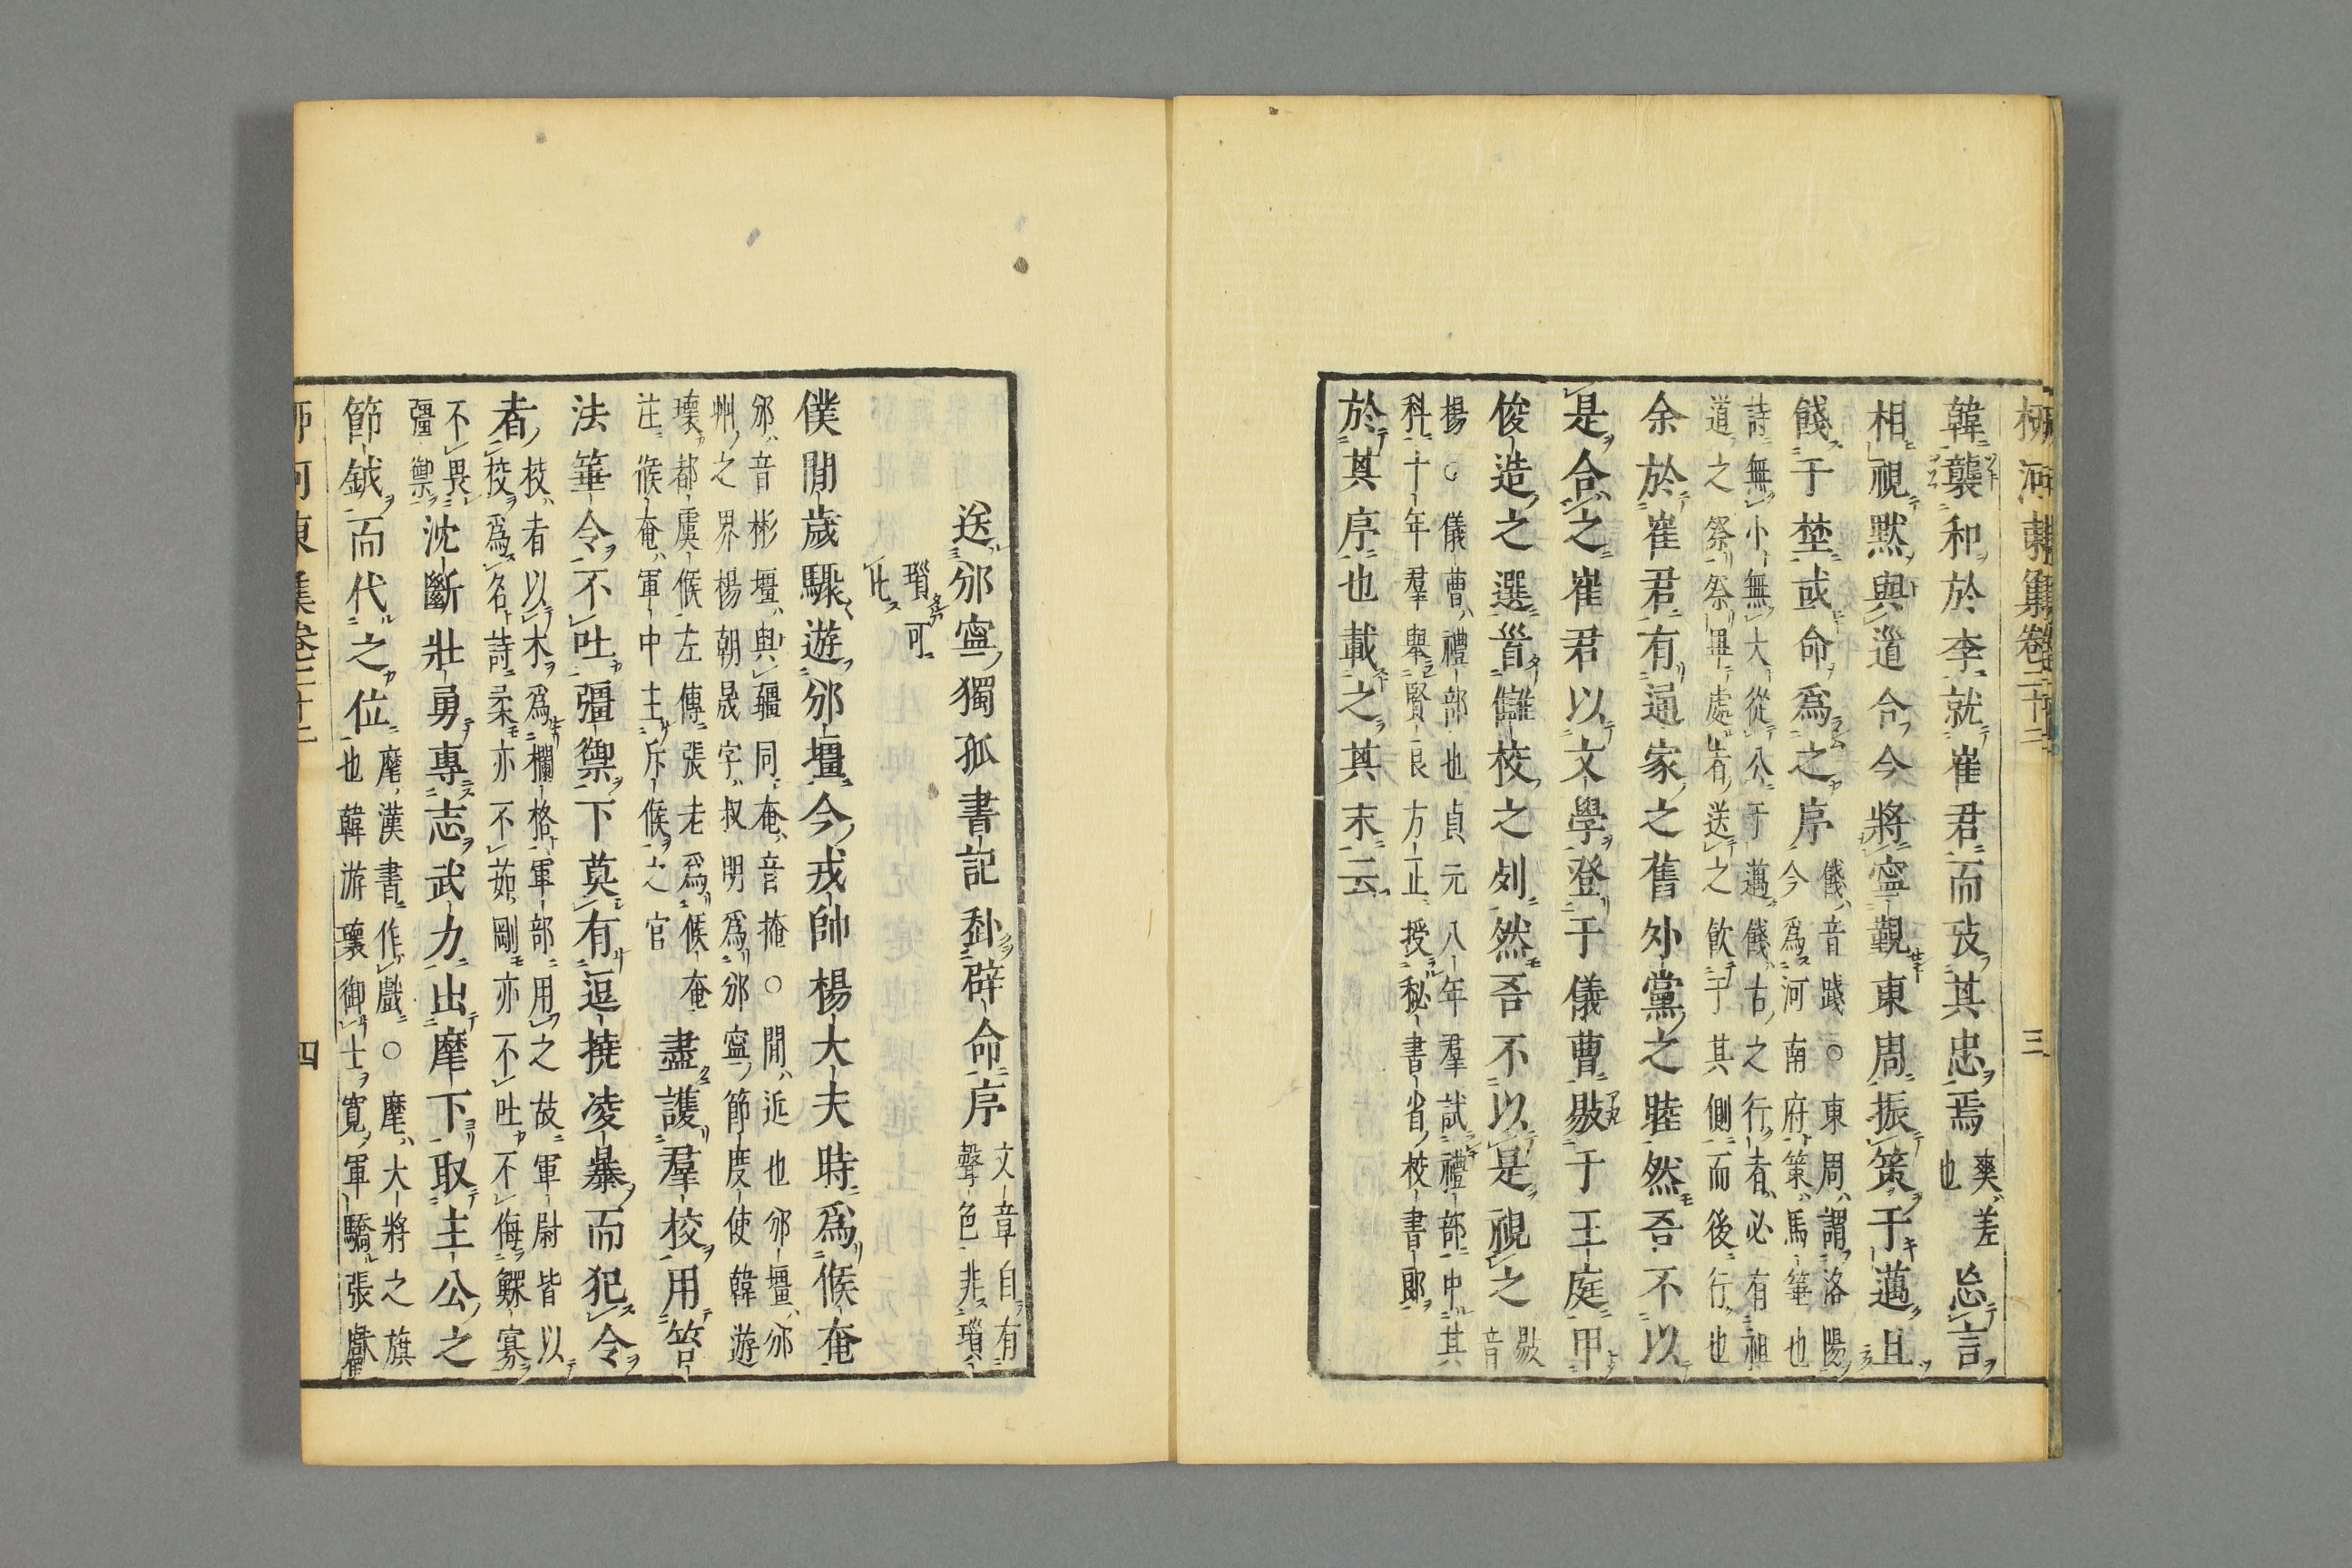 柳河東集卷二十二
三
韓襲和於李就崔君而攷其忠焉
爽差
也
忩言
相視默與道合今將寧覲東周振策于邁且
餞于埜或命爲之序
餞音踐○東周謂洛陽
今爲河南府策馬箠也
詩無小無大從公于邁餞古之行者必有祖
道之祭祭畢處者送之飮于其側而後行也
余於崔君有通家之舊外黨之睦然吾不以
是合之崔君以文學登于儀曹敭于王庭甲
俊造之選首讎校之列然吾不以是視之
敭音
揚○儀曹禮部也貞元八年羣試禮部中其
科十年羣舉賢良方正授秘書省校書郞
於其序也載之其末云
送邠寧獨孤書記赴辟命序
文章自有
聲色非瑣
瑣可
比
僕間歲驟遊邠壇今戎帥楊大夫時爲候奄
邠音彬壇與疆同奄音掩○間近也邠壇邠
州之界楊朝晟字叔明爲邠寧節度使韓遊
瓌都虞候左傳張老爲候奄
注候奄軍中主斥候之官
盡護羣校用笞
法箠令不吐彊禦下莫有逗撓凌暴而犯令
者
校者以木爲欄格軍部用之故軍尉皆以
校爲名詩柔亦不茹剛亦不吐不侮鰥寡
不畏
彊禦
沈斷壯勇專志武力出麾下取主公之
節鉞而代之位
麾漢書作戲○麾大將之旗
也韓游瓌御士寬軍驕張獻
河東集卷二十二
四